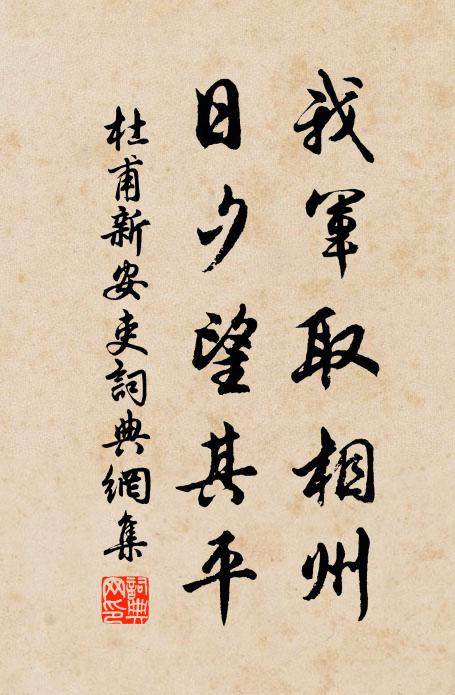 我軍取相州
日夕望其平
杜甫新安吏詞典網集
詞典網印